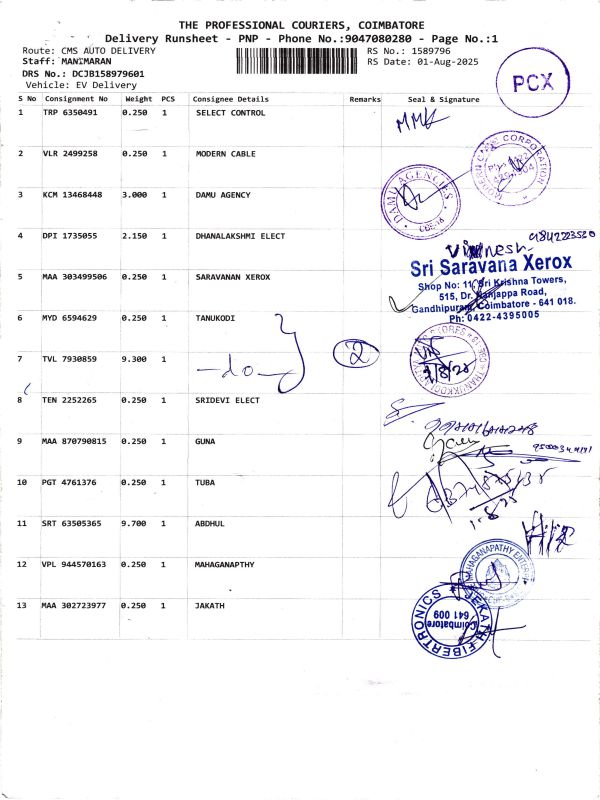 THE PROFESSIONAL COURIERS, COIMBATORE
Delivery Runsheet - PNP - Phone No.:9047080280 - Page No.:1
Route: CMS AUTO DELIVERY
RS No.: 1589796
Staff: MANIMARAN
RS Date: 01-Aug-2025
DRS No.: DCJB158979601
Vehicle: EV Delivery
PCX
S No Consignment No Weight PCS Consignee Details Remarks Seal & Signature
1 TRP 6350491 0.250 1 SELECT CONTROL
2 VLR 2499258 0.250 1 MODERN CABLE
MODERN CORPORATION
3 KCM 13468448 3.000 1 DAMU AGENCY
DAMU AGENCIES
4 DPI 1735055 2.150 1 DHANALAKSHMI ELECT
9842223520
5 MAA 303499506 0.250 1 SARAVANAN XEROX
Sri Saravana Xerox
Shop No: 11, Sri Krishna Towers,
515, Dr. Nanjappa Road,
Gandhipuram, Coimbatore - 641 018.
Ph: 0422-4395005
6 MYD 6594629 0.250 1 TANUKODI
7 TVL 7930859 9.300 1
-do-
2
1/8/25
8 TEN 2252265 0.250 1 SRIDEVI ELECT
9 MAA 870790815 0.250 1 GUNA
10 PGT 4761376 0.250 1 TUBA
1-8-25
11 SRT 63505365 9.700 1 ABDHUL
12 VPL 944570163 0.250 1 MAHAGANAPTHY
MAHAGANAPATHY
13 MAA 302723977 0.250 1 JAKATH
JEKATH FIBERTRONICS
Coimbatore
641 009